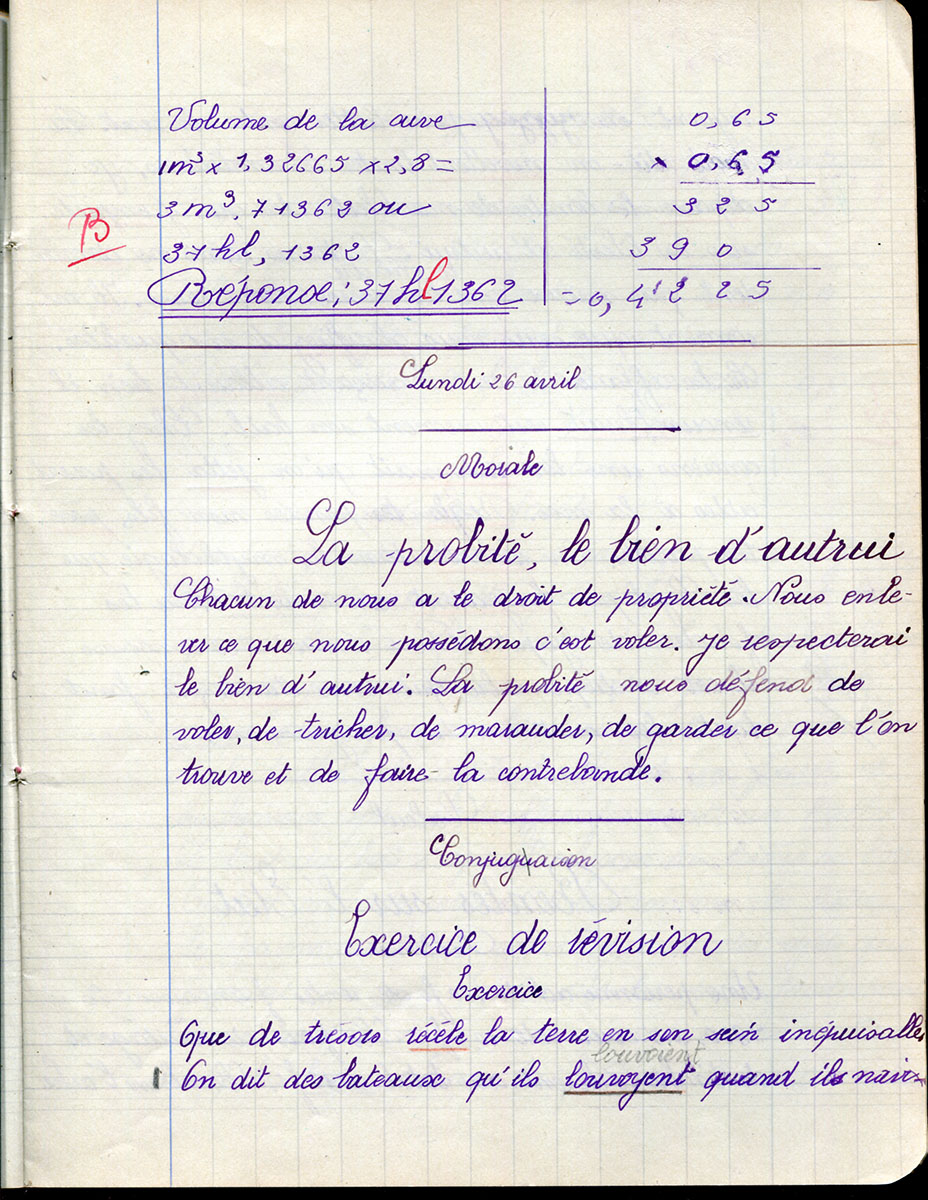 Volume de la cuve
1m³ x 1,32665 x 2,8 =
3m³, 71362 ou
37 hl, 1362
Réponse : 37 hl 1362
B
0,65
x 0,65
325
390
= 0,4225
Lundi 26 avril
Morale
La probité, le bien d'autrui
Chacun de nous a le droit de propriété. Nous enle-
ver ce que nous possédons c'est voler. Je respecterai
le bien d'autrui. La probité nous défend de
voler, de tricher, de marauder, de garder ce que l'on
trouve et de faire la contrebande.
Conjuguaison
Exercice de révision
Exercice
Que de trésors récèle la terre en son sein inépuisable
louvoient
On dit des bateaux qu'ils louvoyent quand ils navi-